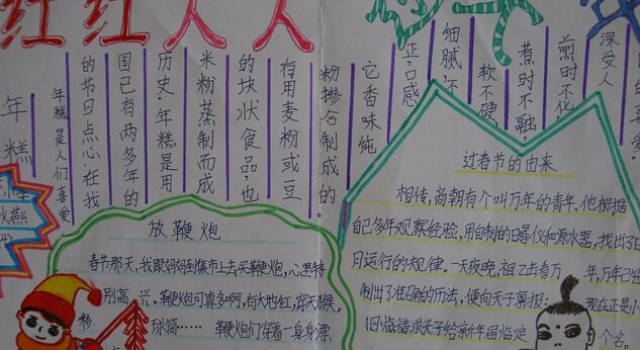 红红
年糕
年糕是人们喜爱
的节日点心,在我
国已有两多年的
历史,年糕是用
米粉蒸制而成
的块状食品,也
有用麦粉或豆
粉掺合制成的
它香味纯
正,口感
细腻,不
软不硬,
煮时不融,
煎时不化,
深受人
放鞭炮
春节那天,我跟妈妈到集市上去买鞭炮,心里特
别高兴,鞭炮可真多啊,有大地红,窜天猴,
球筒……鞭炮们穿着一身身漂
过春节的由来
相传,商朝有个叫万年的青年,他根据
自己多年观察经验,用自制的日晷仪和漏水器,找出了
日运行的规律。一天夜晚,祖乙去看万年,万年已
制出了准确的历法,便向天子禀报:现在正是
旧临请求天子给新年届临定个名。